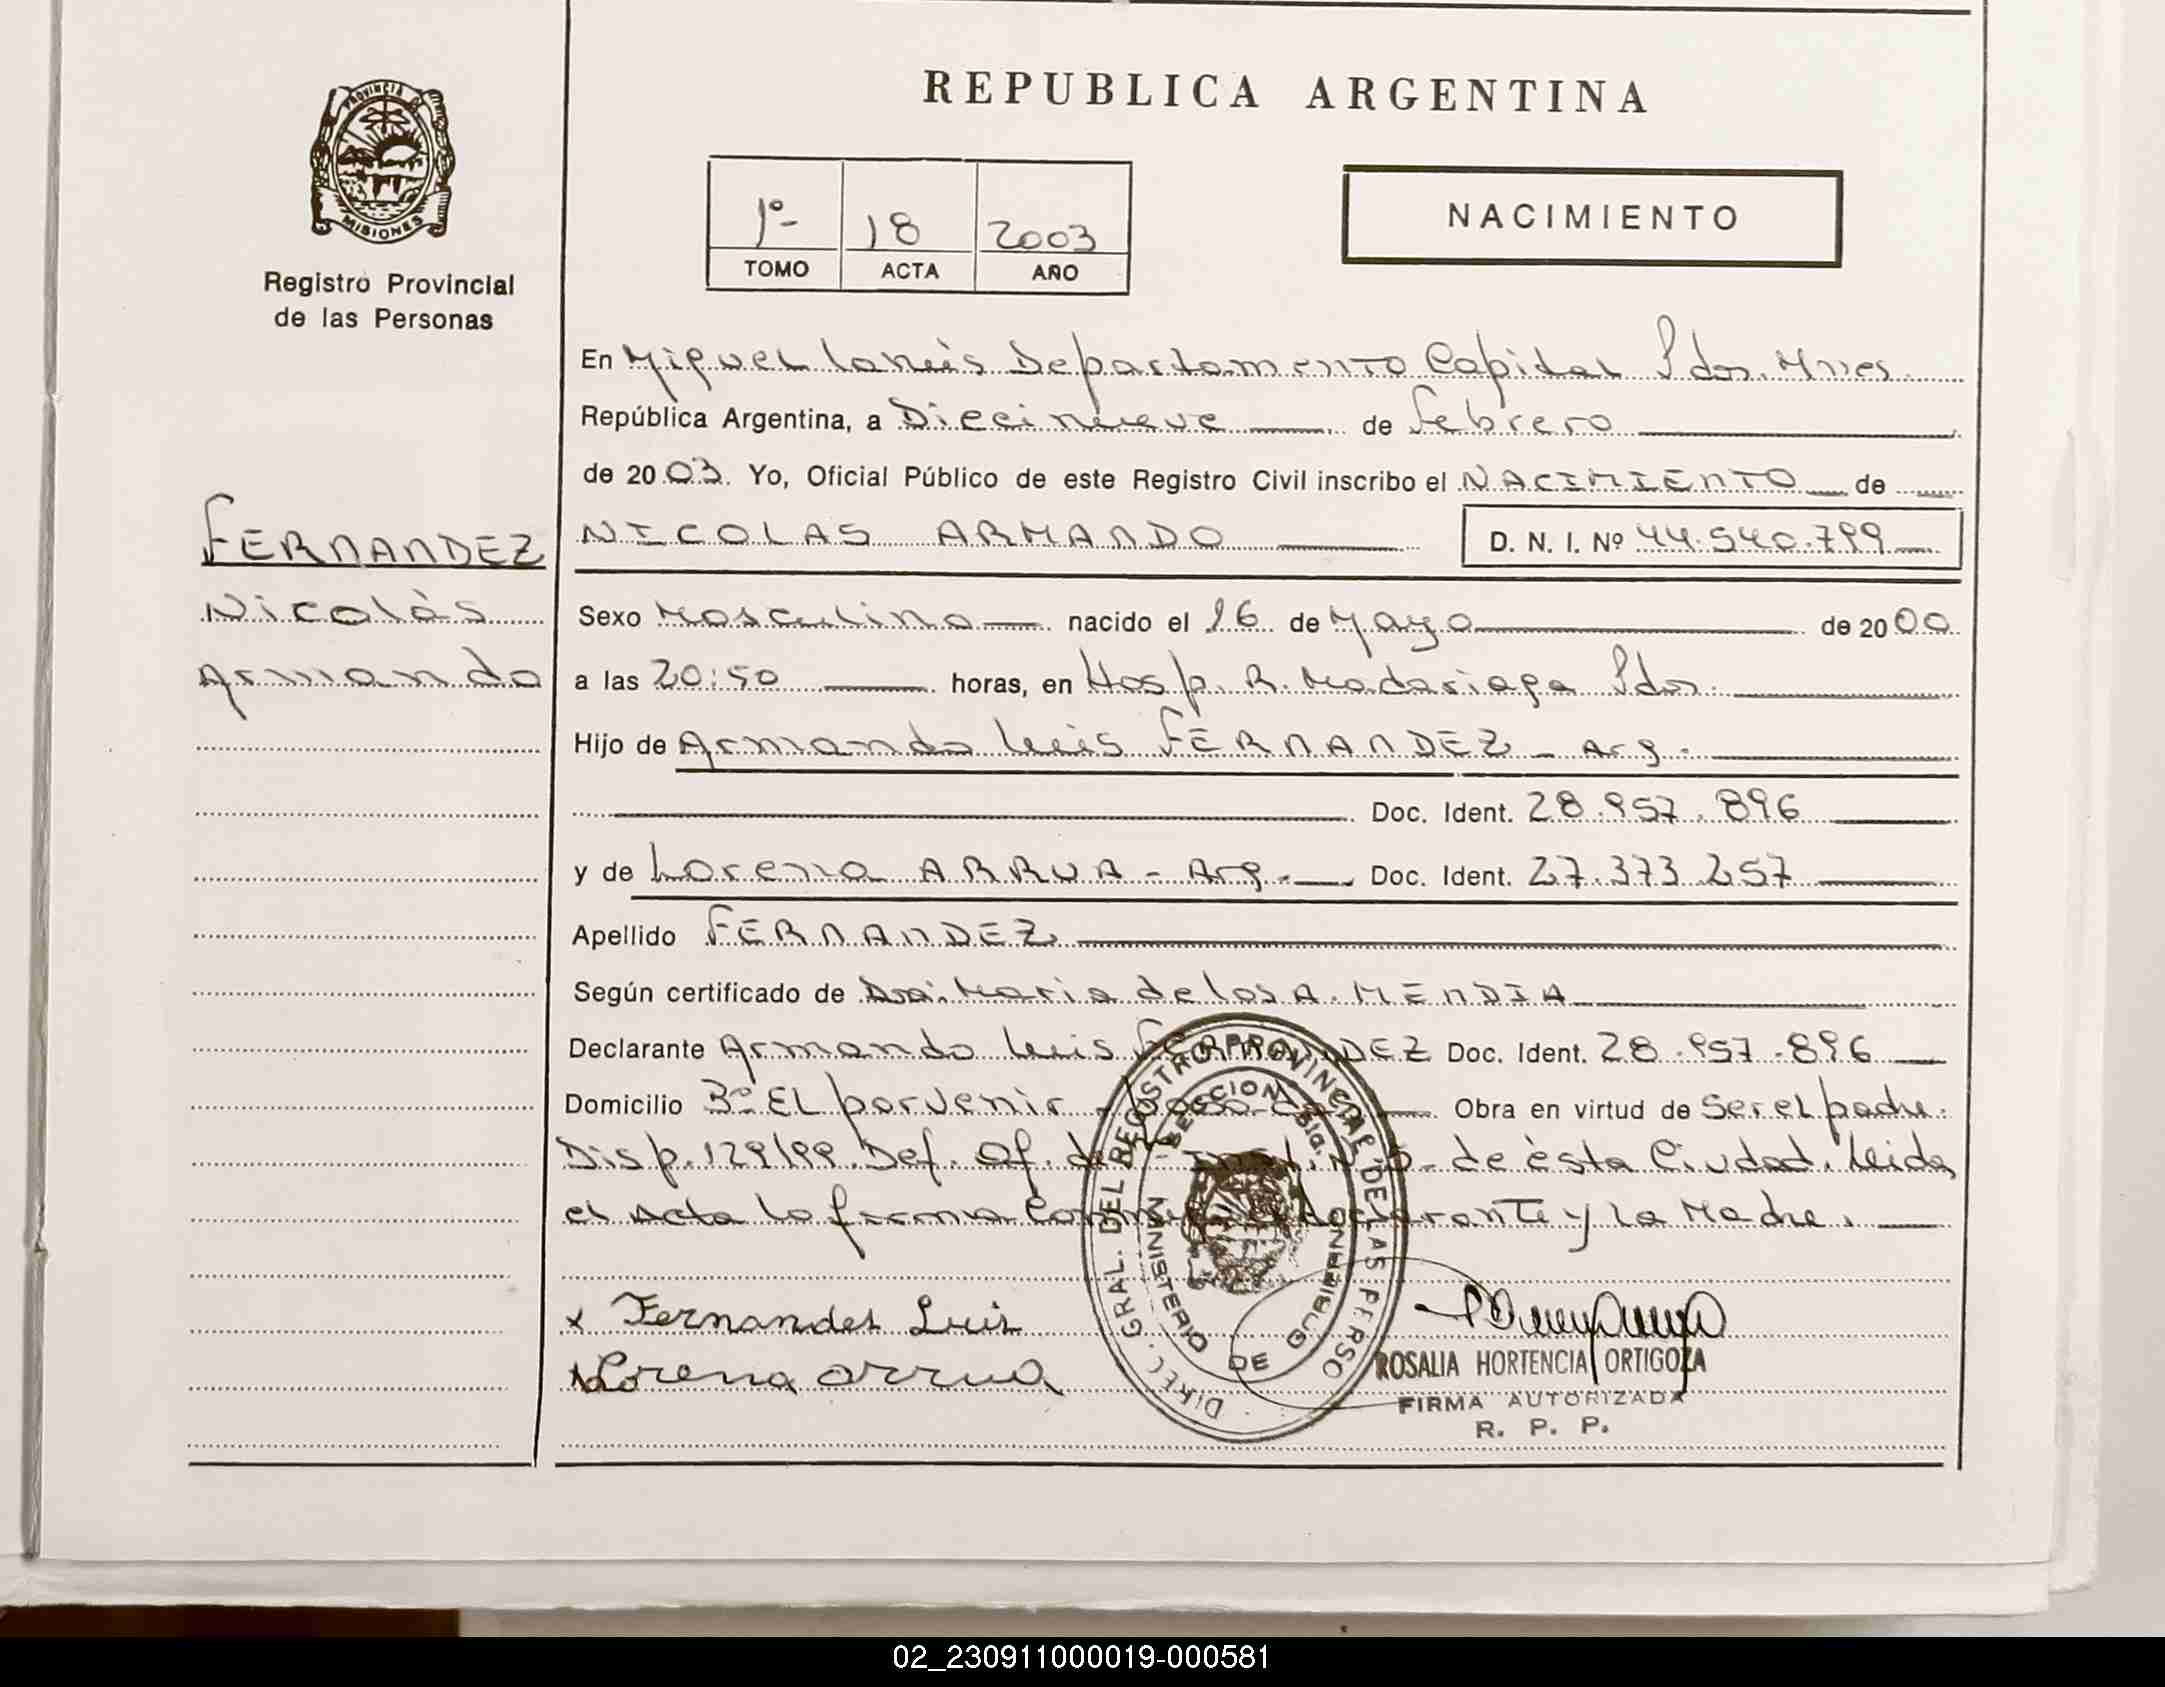 REPUBLICA ARGENTINA
PROVINCIA DE
MISIONES
Registro Provincial
de las Personas
1º- 18 2003
TOMO ACTA AÑO
NACIMIENTO
En Miguel Lanús Departamento Capital Pdas. Mnes.
República Argentina, a Diecinueve de Febrero
de 2003. Yo, Oficial Público de este Registro Civil inscribo el NACIMIENTO de
FERNANDEZ
Nicolás
Armando
NICOLAS ARMANDO D. N. I. Nº 44.540.799
Sexo Masculino nacido el 16 de Mayo de 2000
a las 20:50 horas, en Hosp. R. Madariaga Pdas.
Hijo de Armando Luis FERNANDEZ - Arg.
Doc. Ident. 28.957.896
y de Lorena ARRUA - Arg. - Doc. Ident. 27.373.257
Apellido FERNANDEZ
Según certificado de Dra. Maria de los A. MENDIA
Declarante Armando Luis FERNANDEZ Doc. Ident. 28.957.896
Domicilio Bº El porvenir - Obra en virtud de Ser el padre.
Disp. 129/99. Def. Of. de Inst. Nº de ésta Ciudad. Leida
el Acta la firma Conmigo el declarante y la Madre.
x Fernandes Luis
x Lorena arrua
DIREC. GRAL. DEL REGISTRO PROVINCIAL DE LAS PERSO
MINISTERIO DE GOBIERNO
ROSALIA HORTENCIA ORTIGOZA
FIRMA AUTORIZADA
R. P. P.
02_230911000019-000581